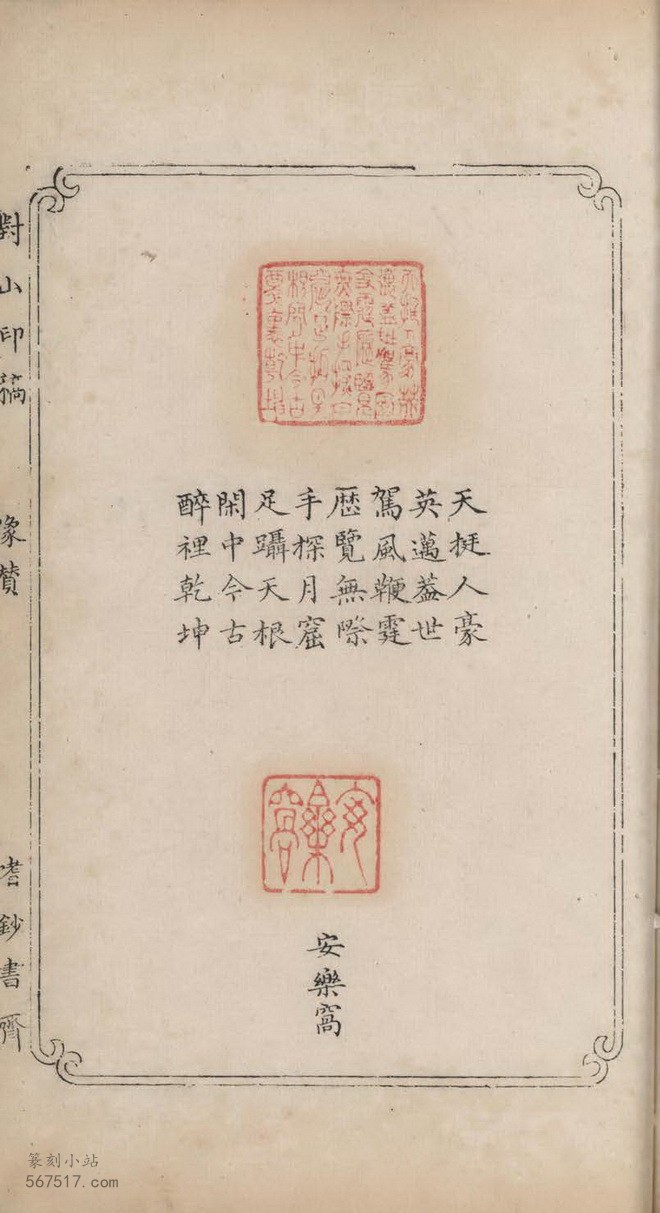 天挺人豪
英邁葢世
駕風鞭霆
歷覽無際
手探月窟
足躡天根
閑中今古
醉裡乾坤
安樂窩
安樂窩
對山印稿
像贊
嗜鈔書齋
篆刻小站
567517.com